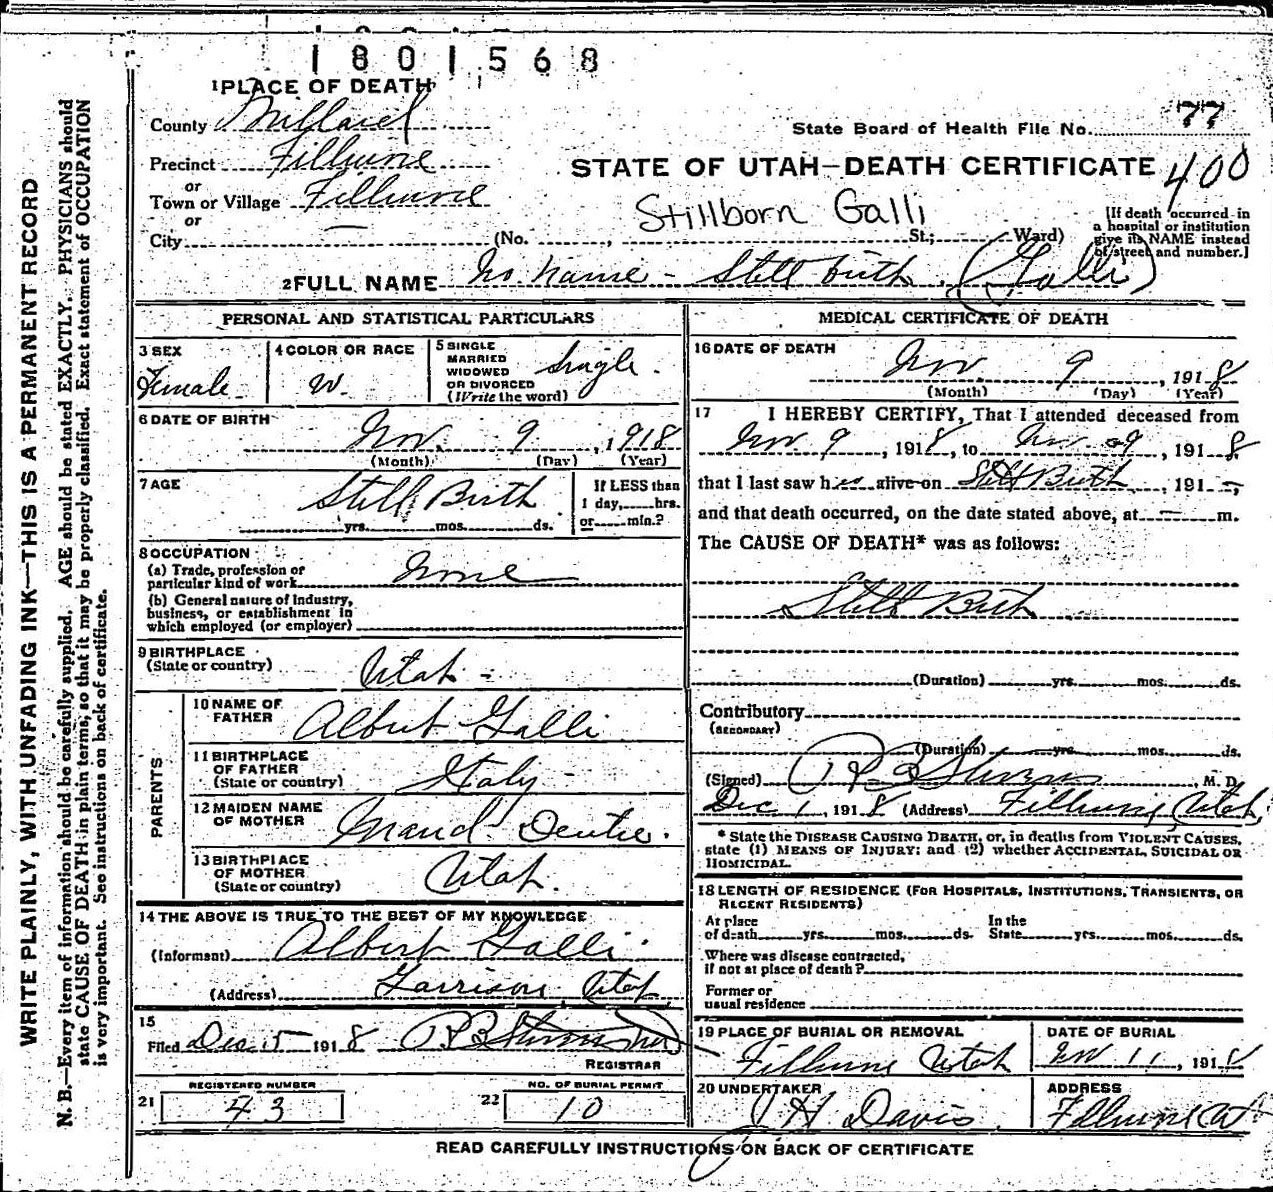 1801568
1 PLACE OF DEATH
County Millard
State Board of Health File No. 77
Precinct Fillmore
STATE OF UTAH—DEATH CERTIFICATE 400
or
Town or Village Fillmore
or
Stillborn Galli
City — (No. , St.; Ward)
[If death occurred in
a hospital or institution
give its NAME instead
of street and number.]
2 FULL NAME No Name - Still Birth (Galli)
PERSONAL AND STATISTICAL PARTICULARS
3 SEX
Female
4 COLOR OR RACE
W.
5 SINGLE
MARRIED
WIDOWED
OR DIVORCED
(Write the word)
Single.
6 DATE OF BIRTH
Nov. 9, 1918
(Month) (Day) (Year)
7 AGE
Still Birth
yrs. mos. ds.
If LESS than
1 day, hrs.
or min.?
8 OCCUPATION
(a) Trade, profession or
particular kind of work None
(b) General nature of Industry,
business, or establishment in
which employed (or employer)
9 BIRTHPLACE
(State or country) Utah -
PARENTS
10 NAME OF
FATHER Albert Galli
11 BIRTHPLACE
OF FATHER
(State or country) Italy -
12 MAIDEN NAME
OF MOTHER Maud
13 BIRTHPLACE
OF MOTHER
(State or country) Utah.
14 THE ABOVE IS TRUE TO THE BEST OF MY KNOWLEDGE
(Informant) Albert Galli
(Address) Garrison, Utah
15
Filed Dec 15 1918
REGISTRAR
REGISTERED NUMBER
21 43
NO. OF BURIAL PERMIT
22 10
MEDICAL CERTIFICATE OF DEATH
16 DATE OF DEATH
Nov 9, 1918
(Month) (Day) (Year)
17 I HEREBY CERTIFY, That I attended deceased from
Nov. 9, 1918, to Nov. 9, 1918
that I last saw her alive on Still Birth, 191-,
and that death occurred, on the date stated above, at — m.
The CAUSE OF DEATH* was as follows:
Still Birth
(Duration) yrs. mos. ds.
Contributory
(SECONDARY)
(Duration) yrs. mos. ds.
(Signed) M. D.
Dec 1, 1918 (Address) Fillmore, Utah
* State the DISEASE CAUSING DEATH, or, in deaths from VIOLENT CAUSES,
state (1) MEANS OF INJURY; and (2) whether ACCIDENTAL, SUICIDAL OR
HOMICIDAL.
18 LENGTH OF RESIDENCE (FOR HOSPITALS, INSTITUTIONS, TRANSIENTS, OR
RECENT RESIDENTS)
At place
of death yrs. mos. ds.
In the
State yrs. mos. ds.
Where was disease contracted,
if not at place of death?
Former or
usual residence
19 PLACE OF BURIAL OR REMOVAL
Fillmore Utah
DATE OF BURIAL
Nov 11, 1918
20 UNDERTAKER
J H Davis
ADDRESS
Fillmore Ut
READ CAREFULLY INSTRUCTIONS ON BACK OF CERTIFICATE
WRITE PLAINLY, WITH UNFADING INK—THIS IS A PERMANENT RECORD
N. B.—Every item of information should be carefully supplied. AGE should be stated EXACTLY. PHYSICIANS should
state CAUSE OF DEATH in plain terms, so that it may be properly classified. Exact statement of OCCUPATION
is very important. See instructions on back of certificate.